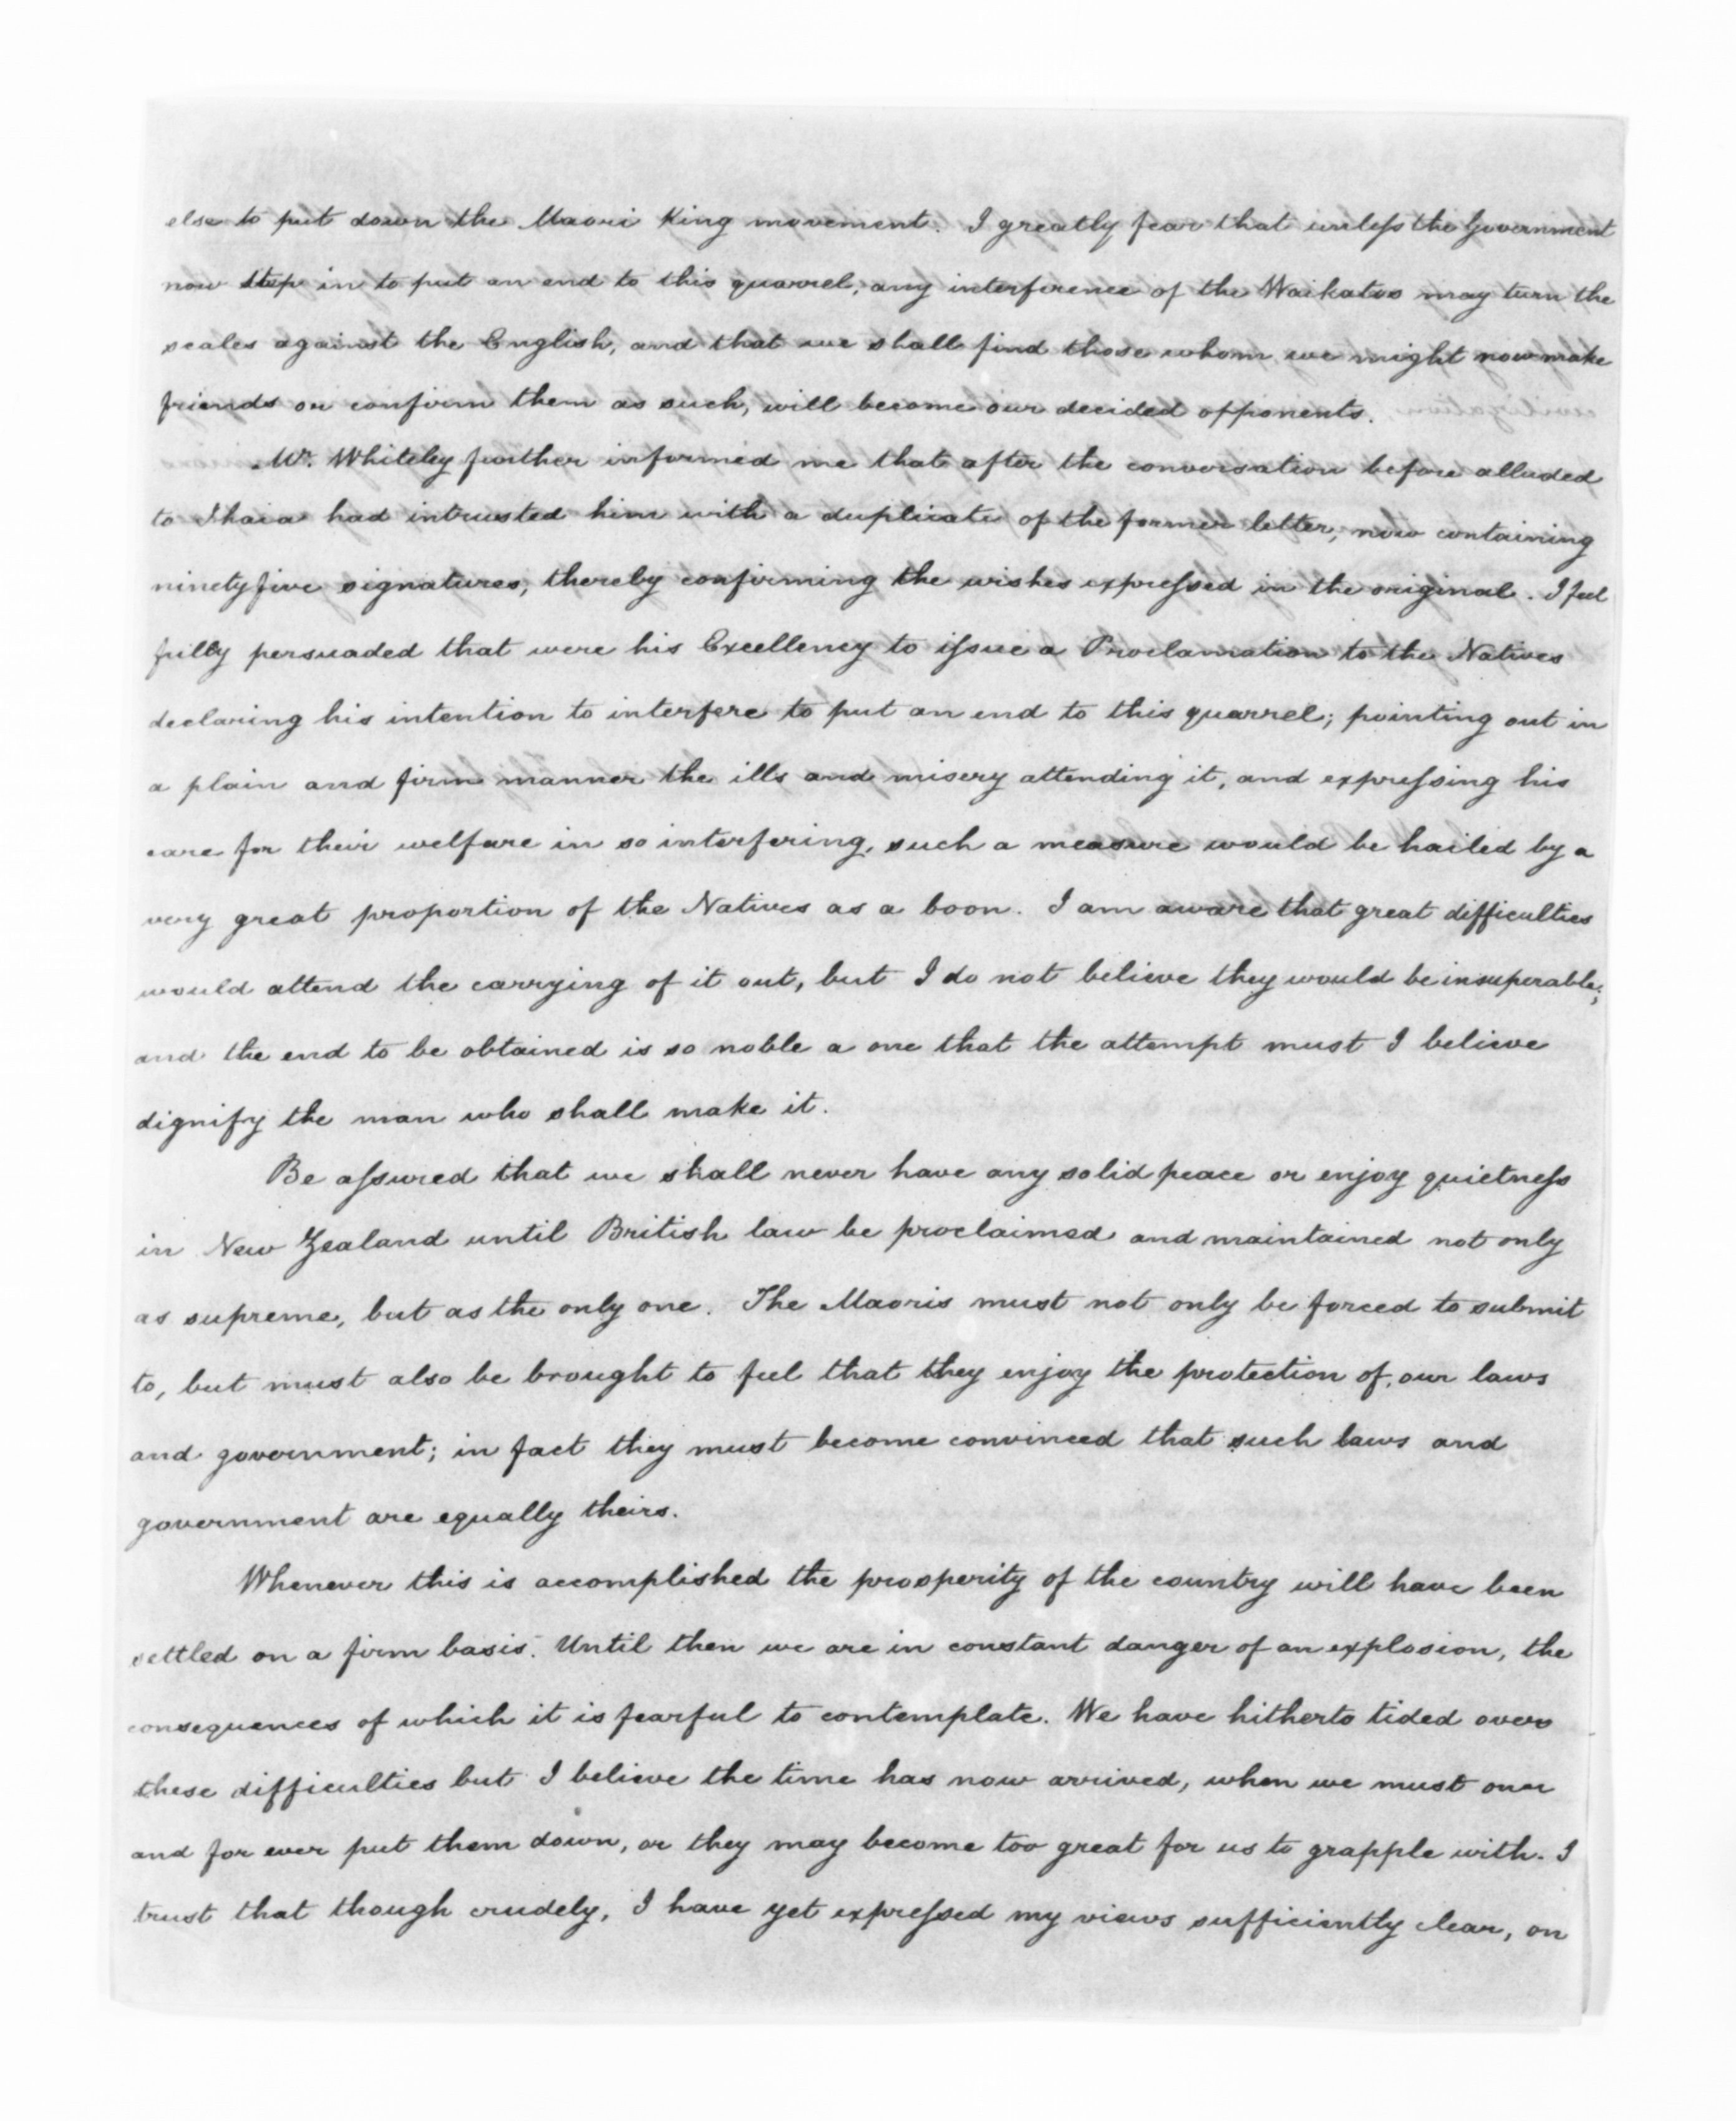 else to put down the Maori King movement. I greatly fear that unless the Government
now step in to put an end to this quarrel, any interference of the Waikatos may turn the
scales against the English, and that we shall find those whom we might now make
friends or confirm them as such, will become our decided opponents.
Mr. Whiteley further informed me that after the conversation before alluded
to Ihaia had intrusted him with a duplicate of the former letter, now containing
ninetyfive signatures, thereby confirming the wishes expressed in the original. I feel
fully persuaded that were his Excellency to issue a Proclamation to the Natives
declaring his intention to interfere to put an end to this quarrel; pointing out in
a plain and firm manner the ills and misery attending it, and expressing his
care for their welfare in so interfering, such a measure would be hailed by a
very great proportion of the Natives as a boon. I am aware that great difficulties
would attend the carrying of it out, but I do not believe they would be insuperable;
and the end to be obtained is so noble a one that the attempt must I believe
dignify the man who shall make it.
Be assured that we shall never have any solid peace or enjoy quietness
in New Zealand until British law be proclaimed and maintained not only
as supreme, but as the only one. The Maoris must not only be forced to submit
to, but must also be brought to feel that they enjoy the protection of, our laws
and government; in fact they must become convinced that such laws and
government are equally theirs.
Whenever this is accomplished the prosperity of the country will have been
settled on a firm basis. Until then we are in constant danger of an explosion, the
consequences of which it is fearful to contemplate. We have hitherto tided over
these difficulties but I believe the time has now arrived, when we must once
and for ever put them down, or they may become too great for us to grapple with. I
trust that though crudely, I have yet expressed my views sufficiently clear, on